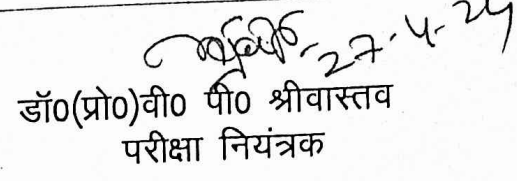 27-4-24
डॉ0(प्रो0)वी0 पी0 श्रीवास्तव
परीक्षा नियंत्रक